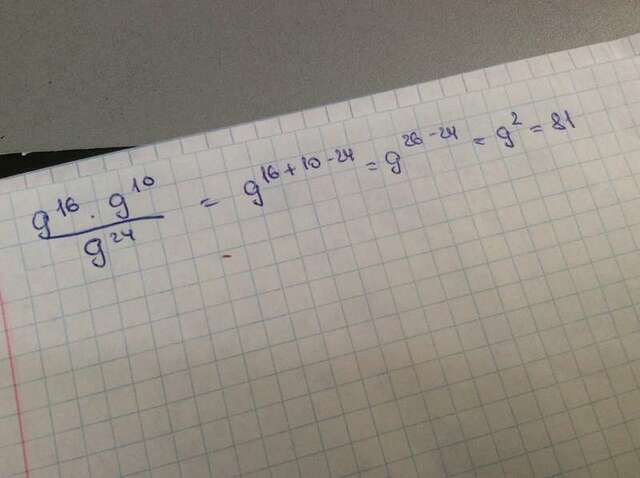 9¹⁶ · 9¹⁰ / 9²⁴ = 9¹⁶⁺¹⁰⁻²⁴ = 9²⁶⁻²⁴ = 9² = 81